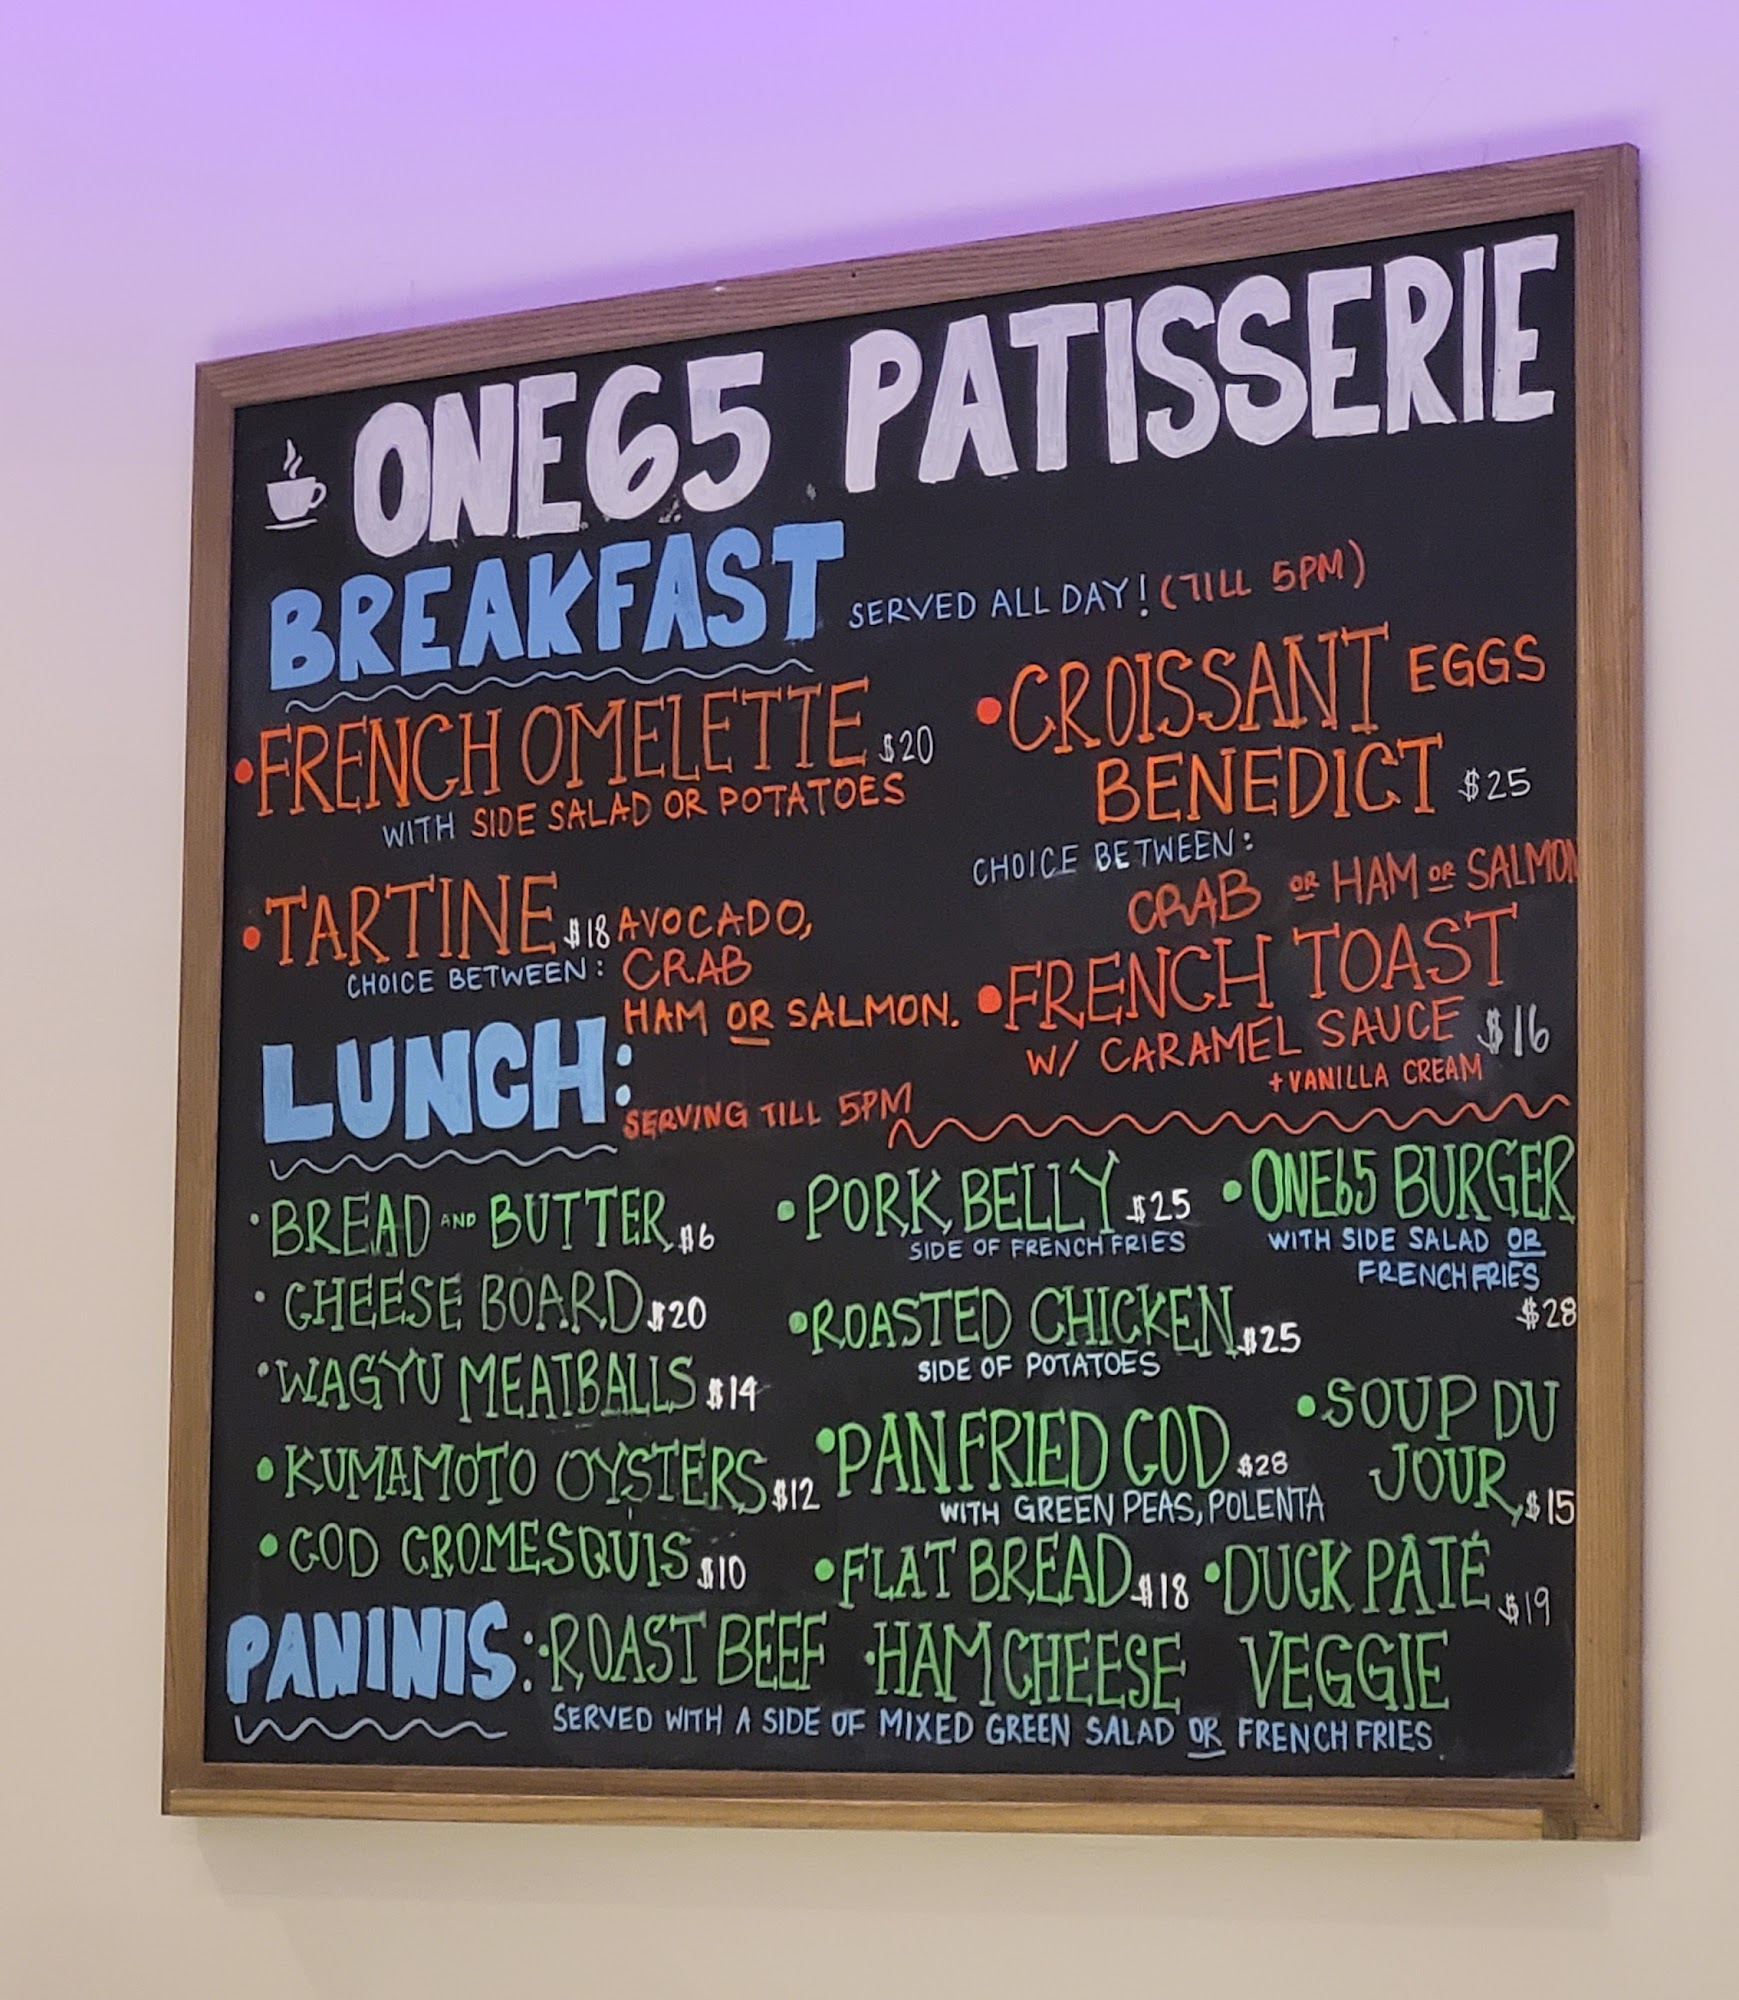 ONE65 PATISSERIE
BREAKFAST SERVED ALL DAY! (TILL 5PM)
• FRENCH OMELETTE $20
WITH SIDE SALAD OR POTATOES
• TARTINE $18 AVOCADO,
CHOICE BETWEEN: CRAB
HAM OR SALMON.
• CROISSANT EGGS
BENEDICT $25
CHOICE BETWEEN:
CRAB OR HAM OR SALMON
• FRENCH TOAST
W/ CARAMEL SAUCE $16
+ VANILLA CREAM
LUNCH:
SERVING TILL 5PM
• BREAD AND BUTTER $6
• CHEESE BOARD $20
• WAGYU MEATBALLS $14
• KUMAMOTO OYSTERS $12
• COD CROMESQUIS $10
• PORK BELLY $25
SIDE OF FRENCH FRIES
• ROASTED CHICKEN $25
SIDE OF POTATOES
• PAN FRIED COD $28
WITH GREEN PEAS, POLENTA
• FLAT BREAD $18
• ONE65 BURGER
WITH SIDE SALAD OR
FRENCH FRIES
$28
• SOUP DU
JOUR $15
• DUCK PATÉ $19
PANINIS: • ROAST BEEF • HAM CHEESE VEGGIE
SERVED WITH A SIDE OF MIXED GREEN SALAD OR FRENCH FRIES